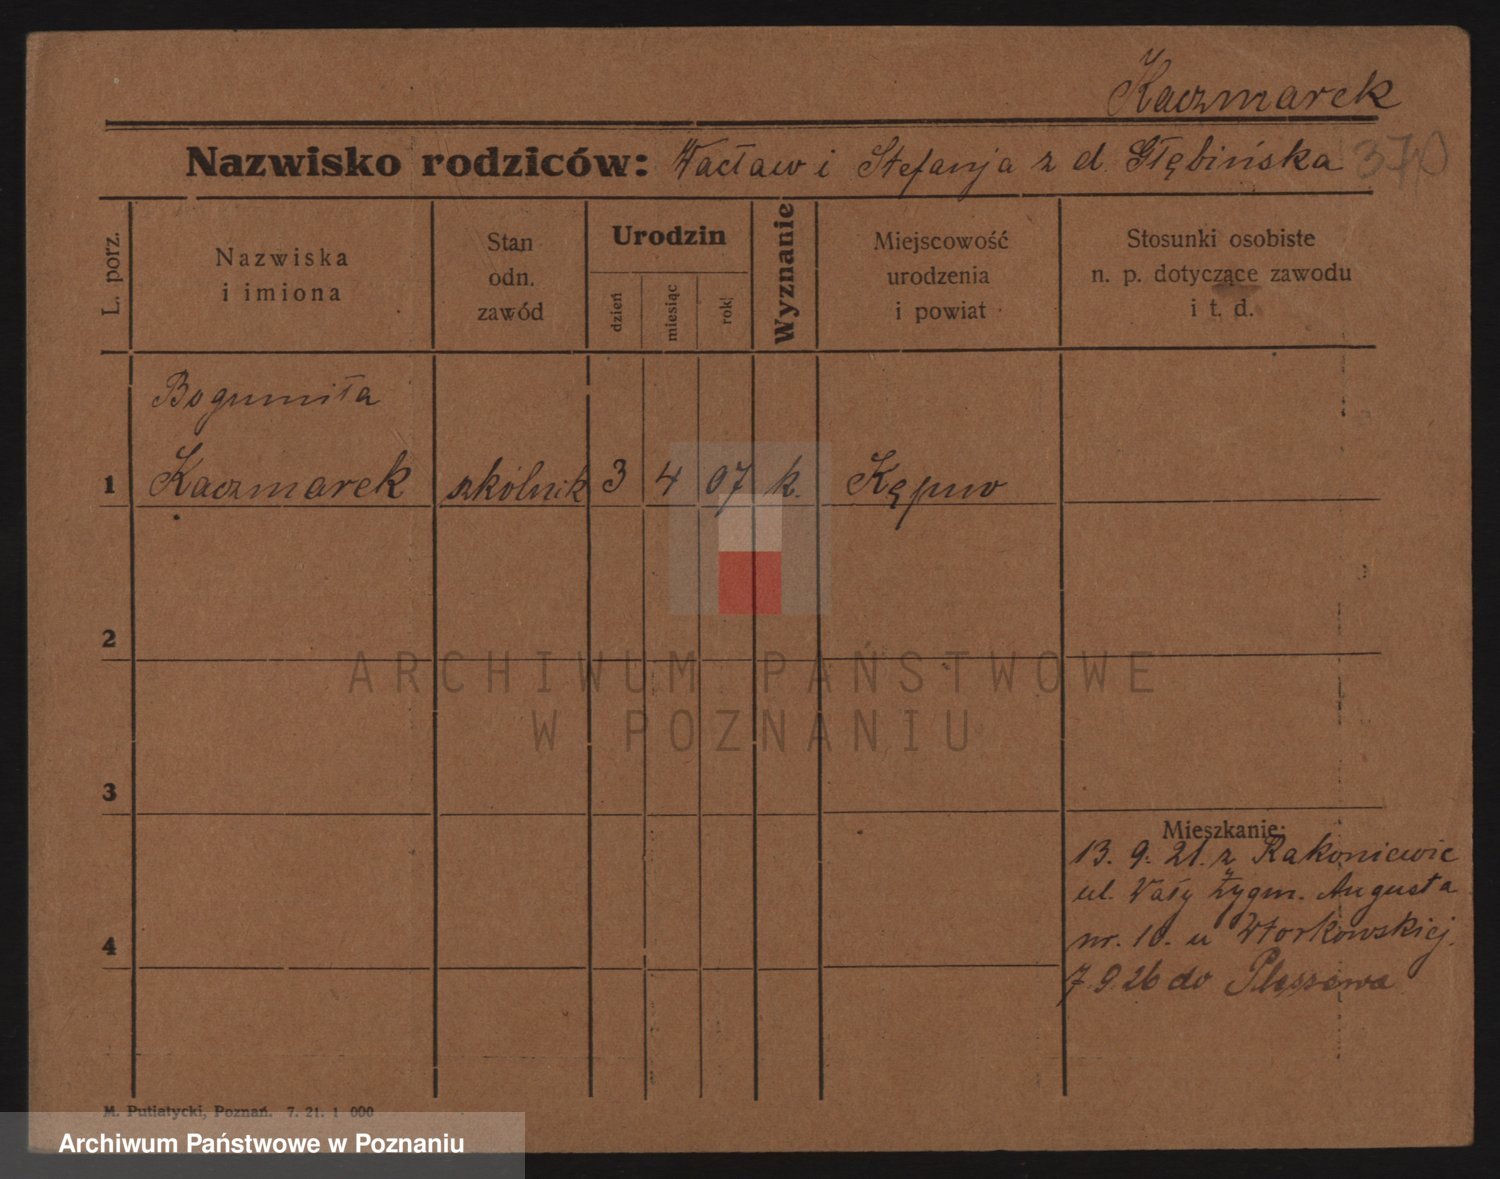 Kaczmarek
Nazwisko rodziców: Wacław i Stefanja z d. Głębińska 370
L. porz.
Nazwiska
i imiona
Stan
odn.
zawód
Urodzin
dzień
miesiąc
rok
Wyznanie
Miejscowość
urodzenia
i powiat
Stosunki osobiste
n. p. dotyczące zawodu
i t. d.
Bogumiła
1 Kaczmarek szkólnik 3 4 07 k. Kępno
2
ARCHIWUM PAŃSTWOWE
W POZNANIU
3
Mieszkanie:
13. 9. 21. z Rakoniewic
ul. Wały Zygm. Augusta
4 nr. 10. u Wtorkowskiej.
7. 9. 26 do Pleszewa
M. Putiatycki, Poznań. 7. 21. 1 000
Archiwum Państwowe w Poznaniu